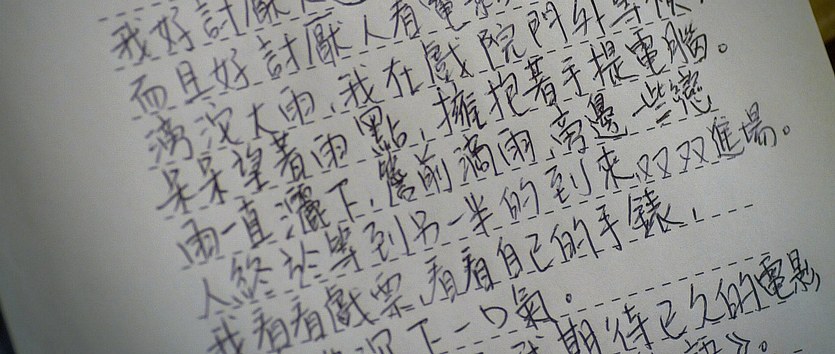 我好討厭
而且好討厭人看電
滂沱大雨,我在戲院門外等
呆呆望着雨點,擁抱着手提電腦。
雨一直灑下,簷前滴雨,旁邊一些戀
人終於等到另一半的到來,双双進場。
我看看戲票,看看自己的手錶,
下一口氣。
期待已久的電影
》。